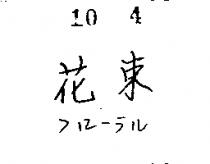 10 4
花束
フローラル